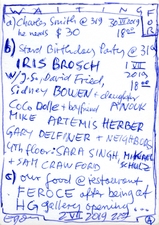 WAITING FOR
a) Charles Smith @ 319 30 VI 2019
he needs $30 18:00
b) Start Birthday Party @ 319
IRIS BROSCH 1 VII 2019
W/ J.Sú, David Fried, 18:00
Sidney BOWEN + daughter
CoCo Dolle + boyfriend
MIKE ARTEMIS HERBER
GARY DELFINER + NEIGHBORS
4th floor: SARA SINGH, MICHAEL
+ SAM CRAWFORD SCHULZ
c) our food @ restaurant
FEROCE after being at
HG gallery opening...
2 VII 2019